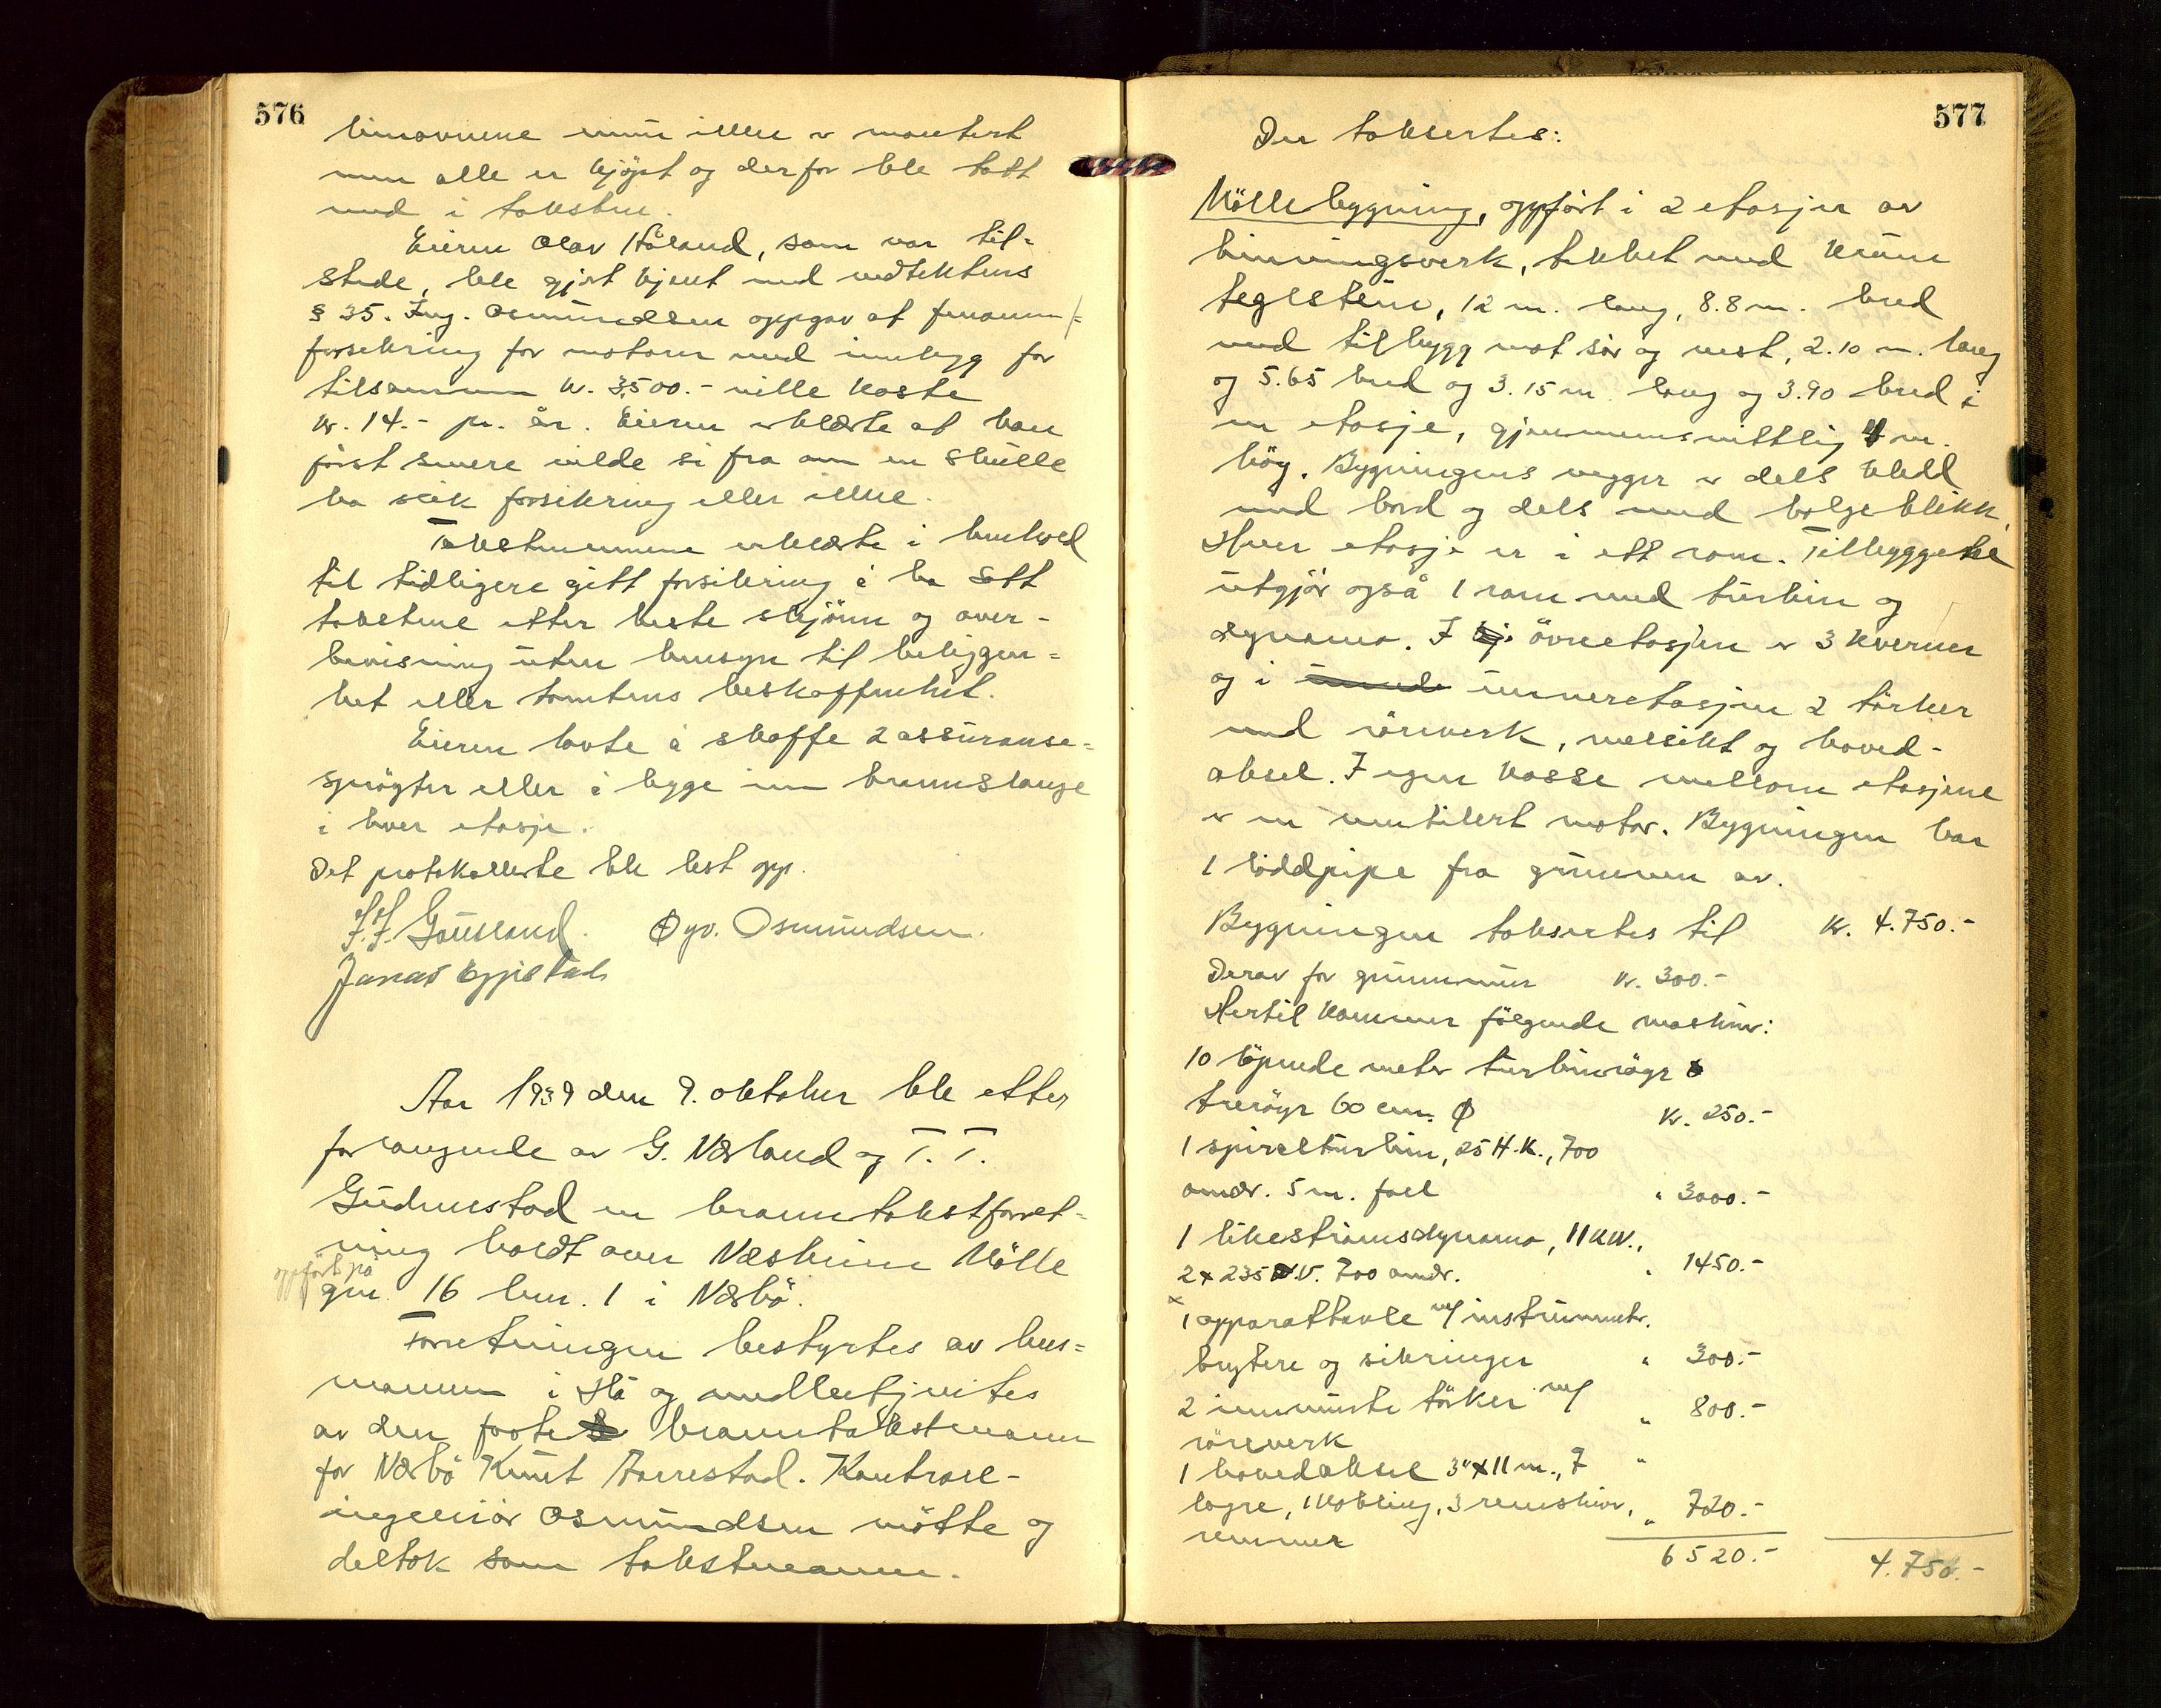 576
limovnene ennu ikke er montert
men alle er kjöpt og derfor ble tatt
med i taksten.
Eieren Olav Håland, som var til=
stede, ble gjort kjent med vedtektens
§ 35. Ing. Osmundsen oppgav at
forsikring for motorer med innbygg for
tilsammen kr. 3500.- ville koste
kr. 14.- pr. år. Eieren erklærte at han
först senere vilde si fra om en skulle
ha slik forsikring eller ikke.
Takstmennene erklærte i henhold
til tidligere gitt forsikring å ha satt
takstene etter beste skjönn og over-
bevisning uten hensyn til beliggen=
het eller tomtens beskaffenhet.
Eieren lovte å skaffe 2 assuranse=
spröyter eller å legge inn brannslange
i hver etasje.
Det protokollerte ble lest opp.
Gausland. Øyv. Osmundsen.
Jonas
Aar 1939 den 9. oktober ble etter
forlangende av G. Nærland og T. T.
Gudmestad en branntakstforret-
ning holdt over Næsheim Mölle
oppfört på
gnr. 16 bnr. 1 i Nærbö.
Forretningen bestyrtes av lens=
mannen i Hå og medbetjentes
av den faste branntakstmann
for Nærbö Knut Aarrestad. Kontroll-
ingeniör Osmundsen mötte og
deltok som takstmann.
577
Der takseertes:
Möllebygning, oppfört i 2 etasjer av
binningsverk, tekket med krum
teglstein, 12 m. lang, 8.8 m. bred
med tilbygg mot sör og vest, 2.10 m. lang
og 5.65 bred og 3.15 m. lang og 3.90 bred i
en etasje, gjennemsnittlig 4 m.
hög. Bygningens vegger er dels kledd
med bord og dels med bölgeblikk.
Hver etasje er i ett rom. Tilbyggene
utgjör også 1 rom med turbin og
dynamo. I övre etasjen er 3 kverner
og i underetasjen 2 törker
med röreverk, melsikt og hoved-
aksel. I egen kasse mellom etasjene
er en ventilert motor. Bygningen har
1 loddpipe fra grunnen av.
Bygningen takseertes til kr. 4.750.-
Derav for grunnmur kr. 300.-
Hertil kommer fölgende maskiner:
10 löpende meter turbinröyr
treröyr 60 cm. Φ kr. 250.-
1 spiralturbin, 25 H.K., 700
omdr. 5 m. fall " 3000.-
1 likeströmsdynamo, 11 KW.,
2 x 235 V. 700 omdr. " 1450.-
1 apparattavle m/ instrumenter,
brytere og sikringer " 300.-
2 innmurte törker m/ " 800.-
röreverk
1 hovedaksel 3" x 11 m., 7 "
lagre, 1 kobling, 3 remskiver, " 720.-
remmer
6520.- 4.750.-